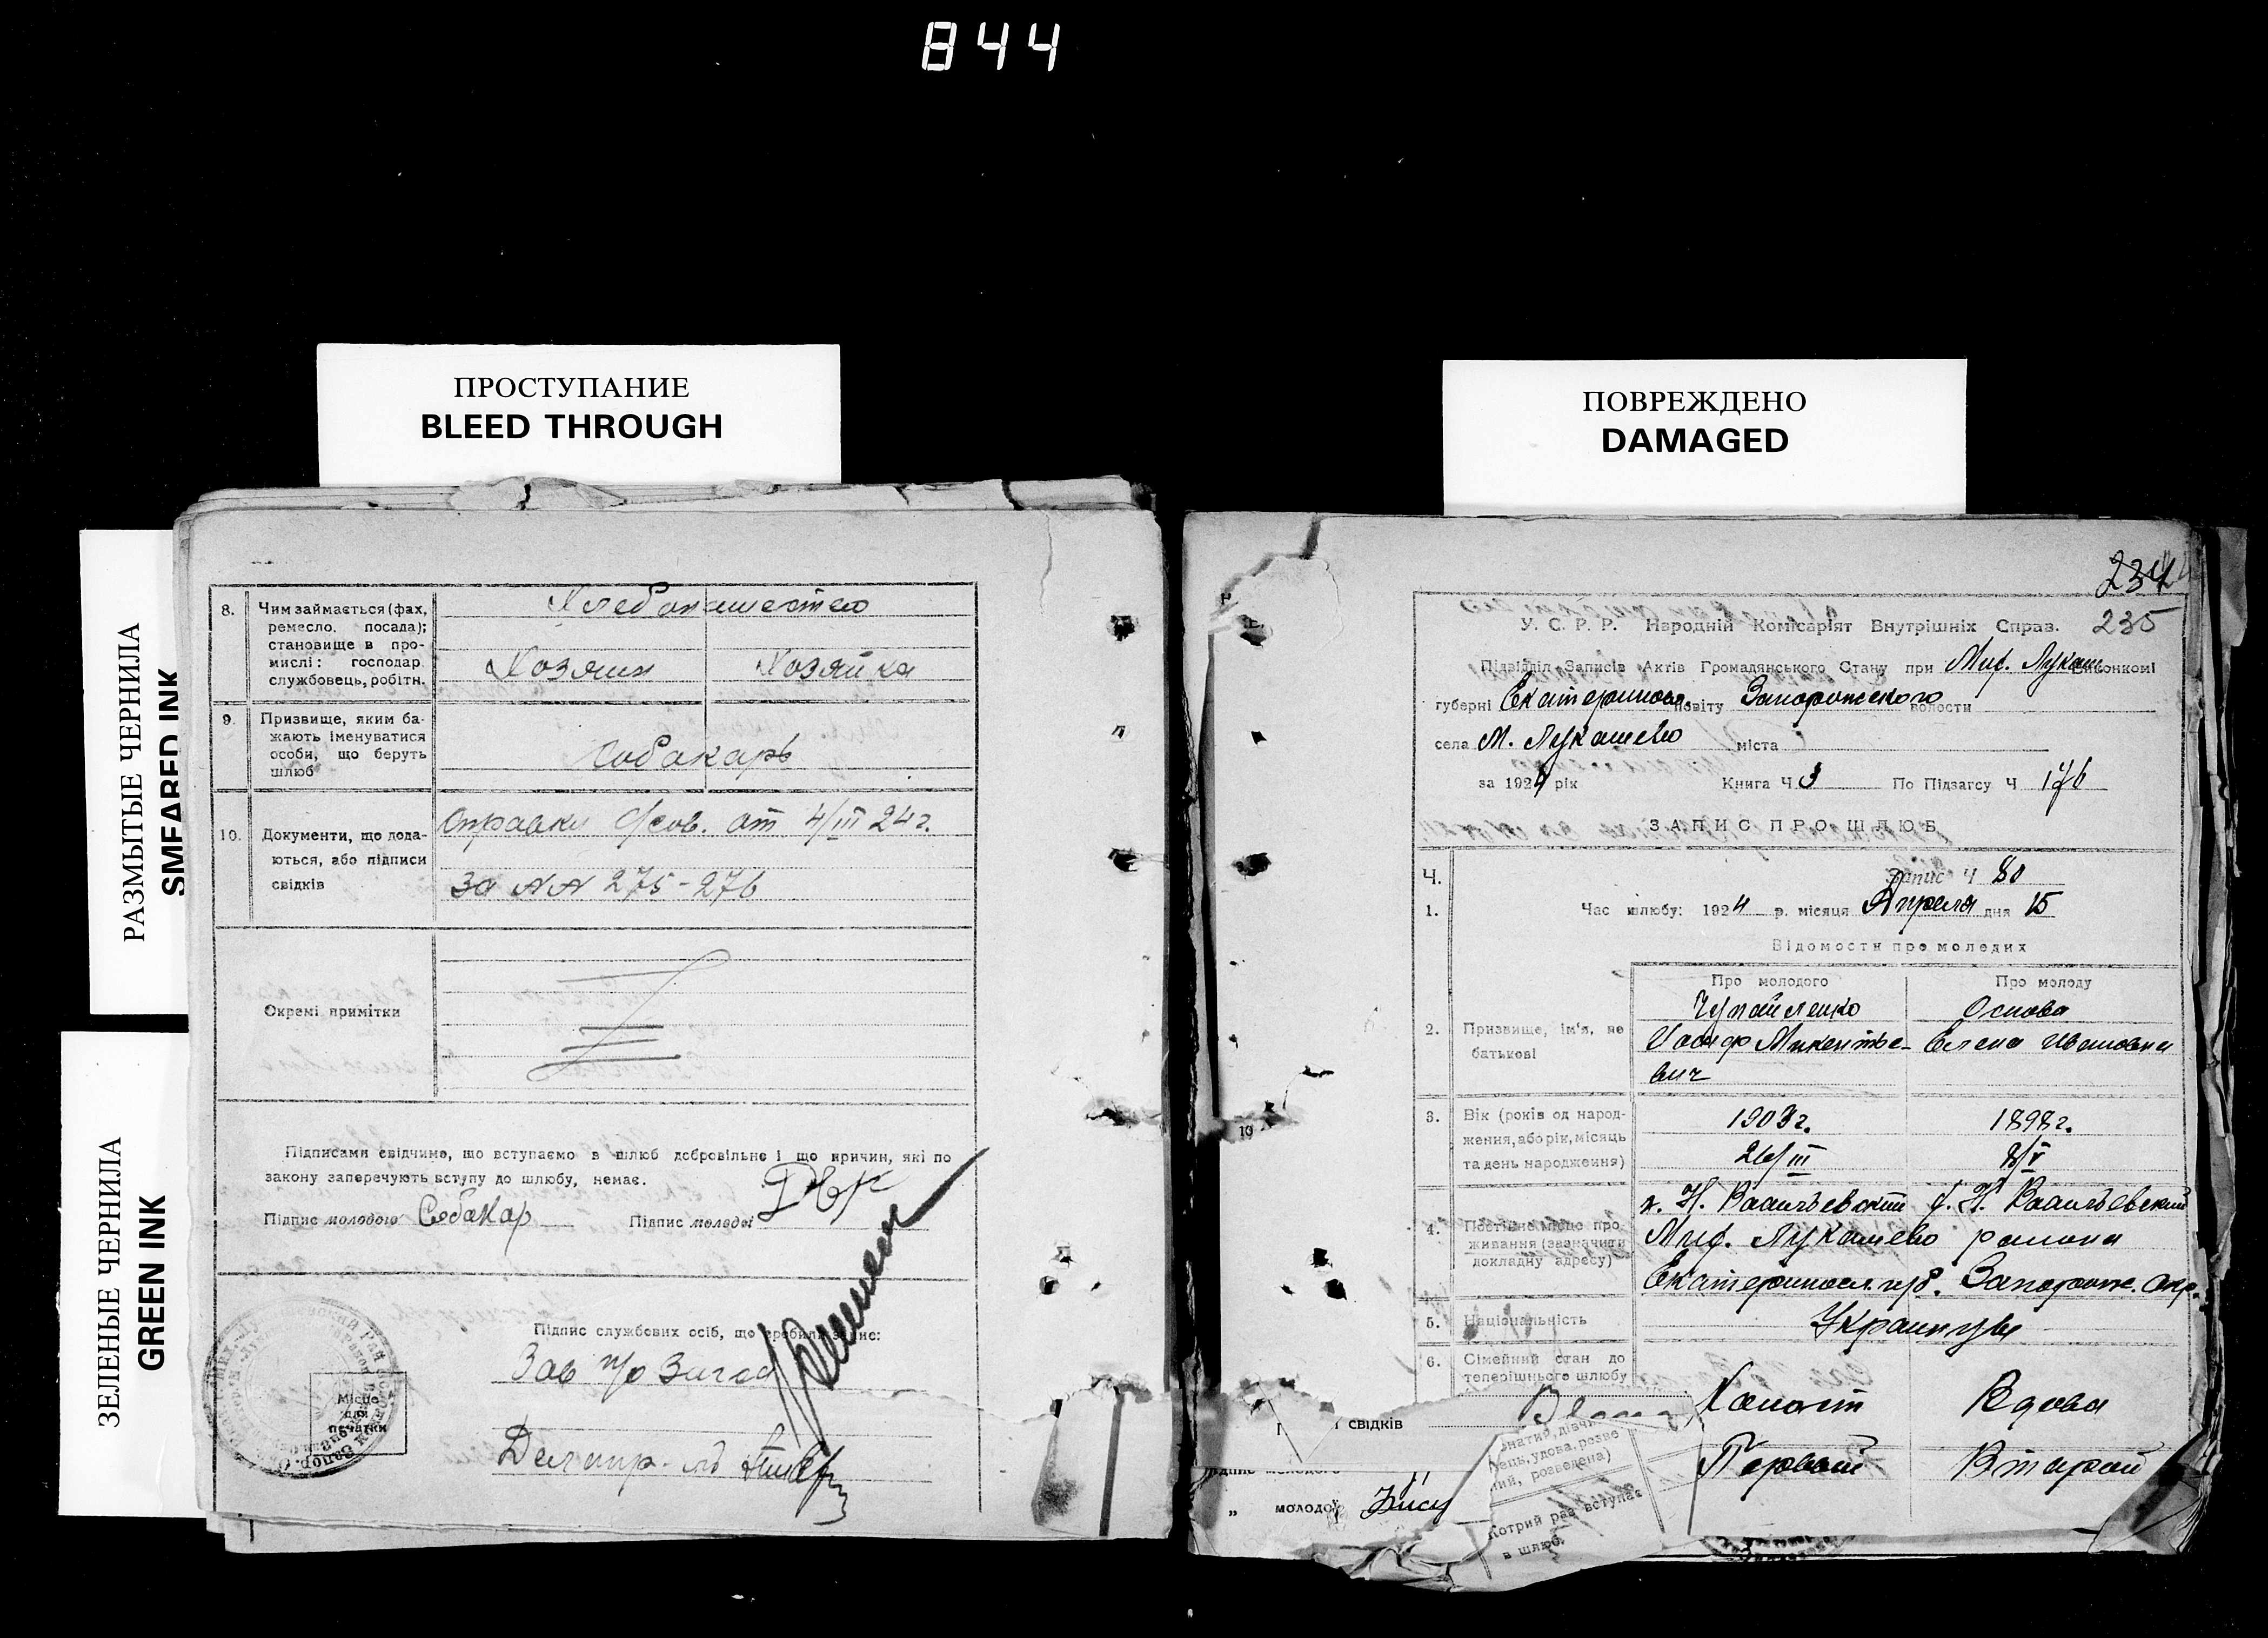 844
ПРОСТУПАНИЕ
BLEED THROUGH
ПОВРЕЖДЕНО
DAMAGED
РАЗМЫТЫЕ ЧЕРНИЛА
SMEARED INK
ЗЕЛЕНЫЕ ЧЕРНИЛА
GREEN INK
8. Чим займається (фах,
ремесло, посада);
становище в про-
мислі: господар
службовець, робітн.
Хлебопашество
Хозяин Хозяйка
9. Призвище, яким ба-
жають іменуватися
особи, що беруть
шлюб
Собакарь
10. Документи, що дода-
ються, або підписи
свідків
Справки с/сов. от 4/III 24 г.
за NN 275-276
Окремі примітки
Підписами свідчимо, що вступаємо в шлюб добровільно і що причин, які по
закону заперечують вступу до шлюбу, немає.
Підпис молодого Собакар Підпис молодої
Підпис службових осіб, що зробили запис:
Зав п/о Загса
Місце
для
печатки
Делопр.
234
235
У. С. Р. Р. Народній Комісаріят Внутрішніх Справ.
Підвідділ Записів Актів Громадянського Стану при Мих. Лукаш. Виконкомі
губерні Екатериносл. повіту Запорожского волости
села М. Лукашево міста
за 1924 рік Книга Ч 3 По Підзагсу Ч 176
ЗАПИС ПРО ШЛЮБ
Ч. Запис Ч 80
1. Час шлюбу: 1924 р. місяця Апреля дня 15
Відомости про молодих
Про молодого Про молоду
2. Призвище, ім'я, по
батькові
Осипова
Иосиф Микентье- Елена Ивановна
вич
3. Вік (років од народ-
ження, або рік, місяць
та день народження)
1903 г. 1898 г.
26/III 8/V
4. Постійне місце про
живання (зазначити
докладну адресу)
х. Н. Васильевский с. Н. Васильевский
Мих. Лукашево района
Екатериносл. губ. Запорож. окр.
5. Національність
Украинцы
6. Сімейний стан до
теперішнього шлюбу
Холост Вдова
свідків
нець, удова, розве
ний, розведена)
Первый Второй
" молодої
Котрий раз вступає
в шлюб